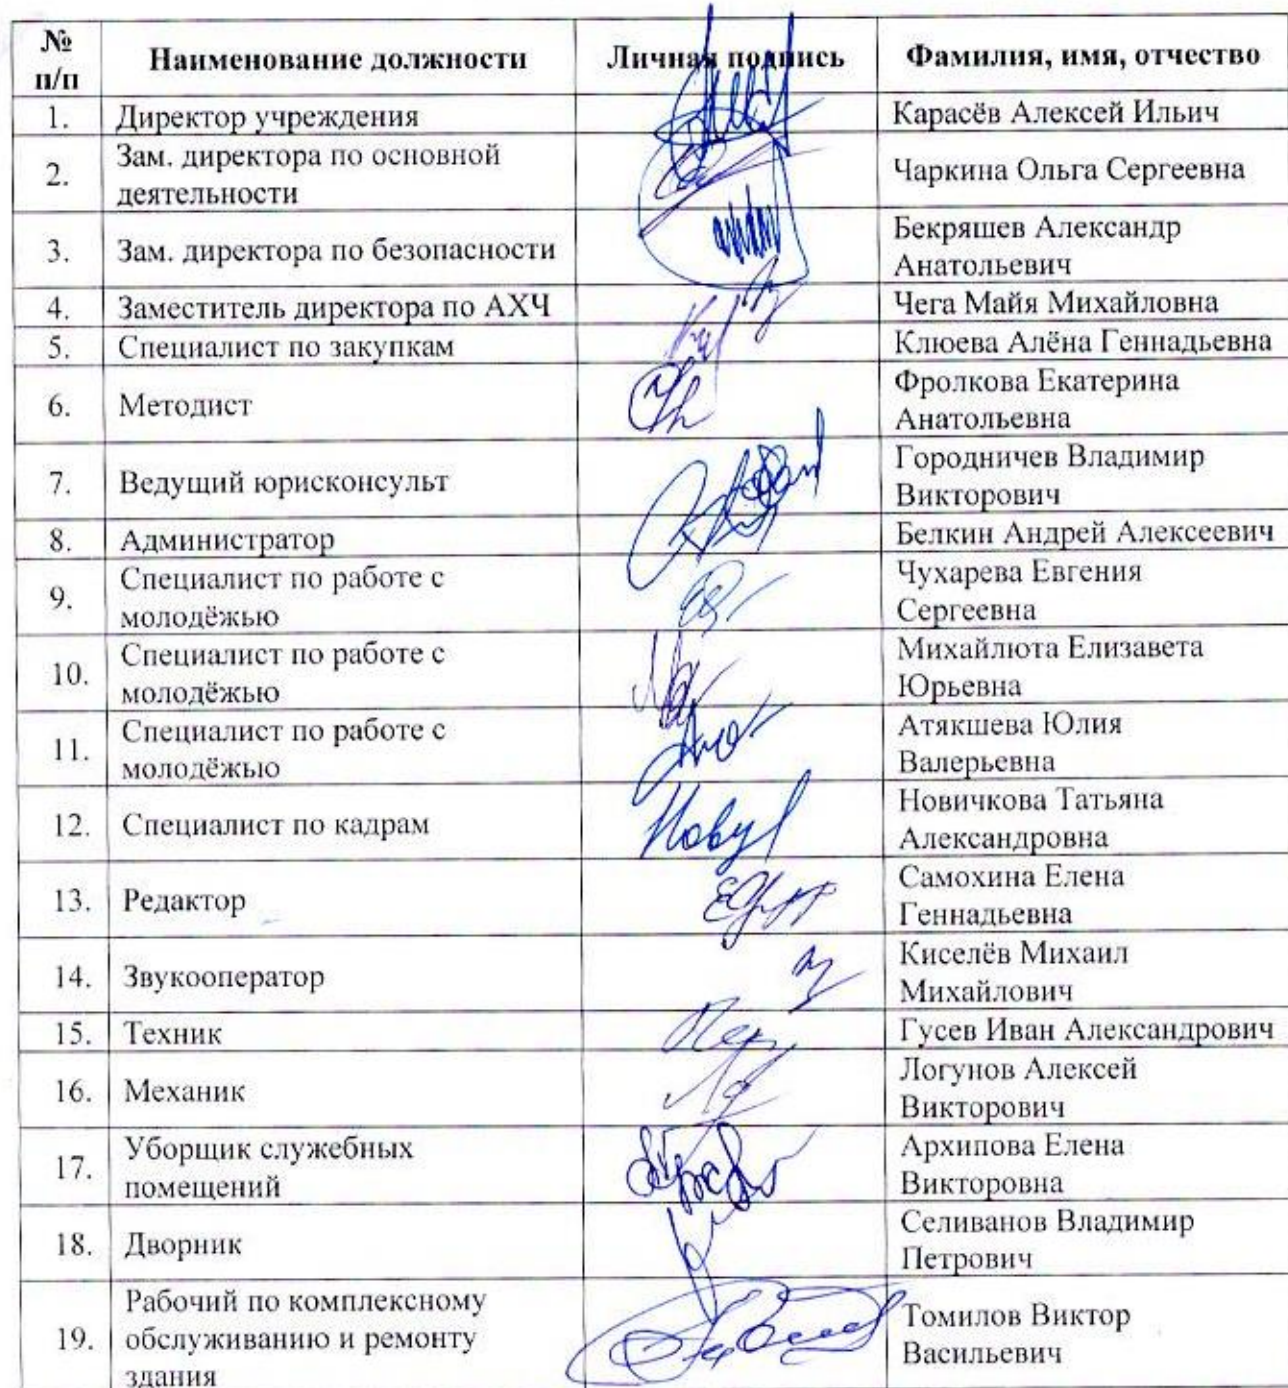 № п/п Наименование должности Личная подпись Фамилия, имя, отчество
1. Директор учреждения Карасёв Алексей Ильич
2. Зам. директора по основной
деятельности Чаркина Ольга Сергеевна
3. Зам. директора по безопасности Бекряшев Александр
Анатольевич
4. Заместитель директора по АХЧ Чега Майя Михайловна
5. Специалист по закупкам Клюева Алёна Геннадьевна
6. Методист Фролкова Екатерина
Анатольевна
7. Ведущий юрисконсульт Городничев Владимир
Викторович
8. Администратор Белкин Андрей Алексеевич
9. Специалист по работе с
молодёжью Чухарева Евгения
Сергеевна
10. Специалист по работе с
молодёжью Михайлюта Елизавета
Юрьевна
11. Специалист по работе с
молодёжью Атякшева Юлия
Валерьевна
12. Специалист по кадрам Новичкова Татьяна
Александровна
13. Редактор Самохина Елена
Геннадьевна
14. Звукооператор Киселёв Михаил
Михайлович
15. Техник Гусев Иван Александрович
16. Механик Логунов Алексей
Викторович
17. Уборщик служебных
помещений Архипова Елена
Викторовна
18. Дворник Селиванов Владимир
Петрович
19. Рабочий по комплексному
обслуживанию и ремонту
здания Томилов Виктор
Васильевич